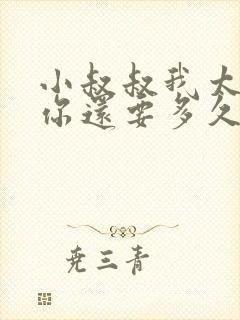 小叔叔我大
你還要多久
尭三青